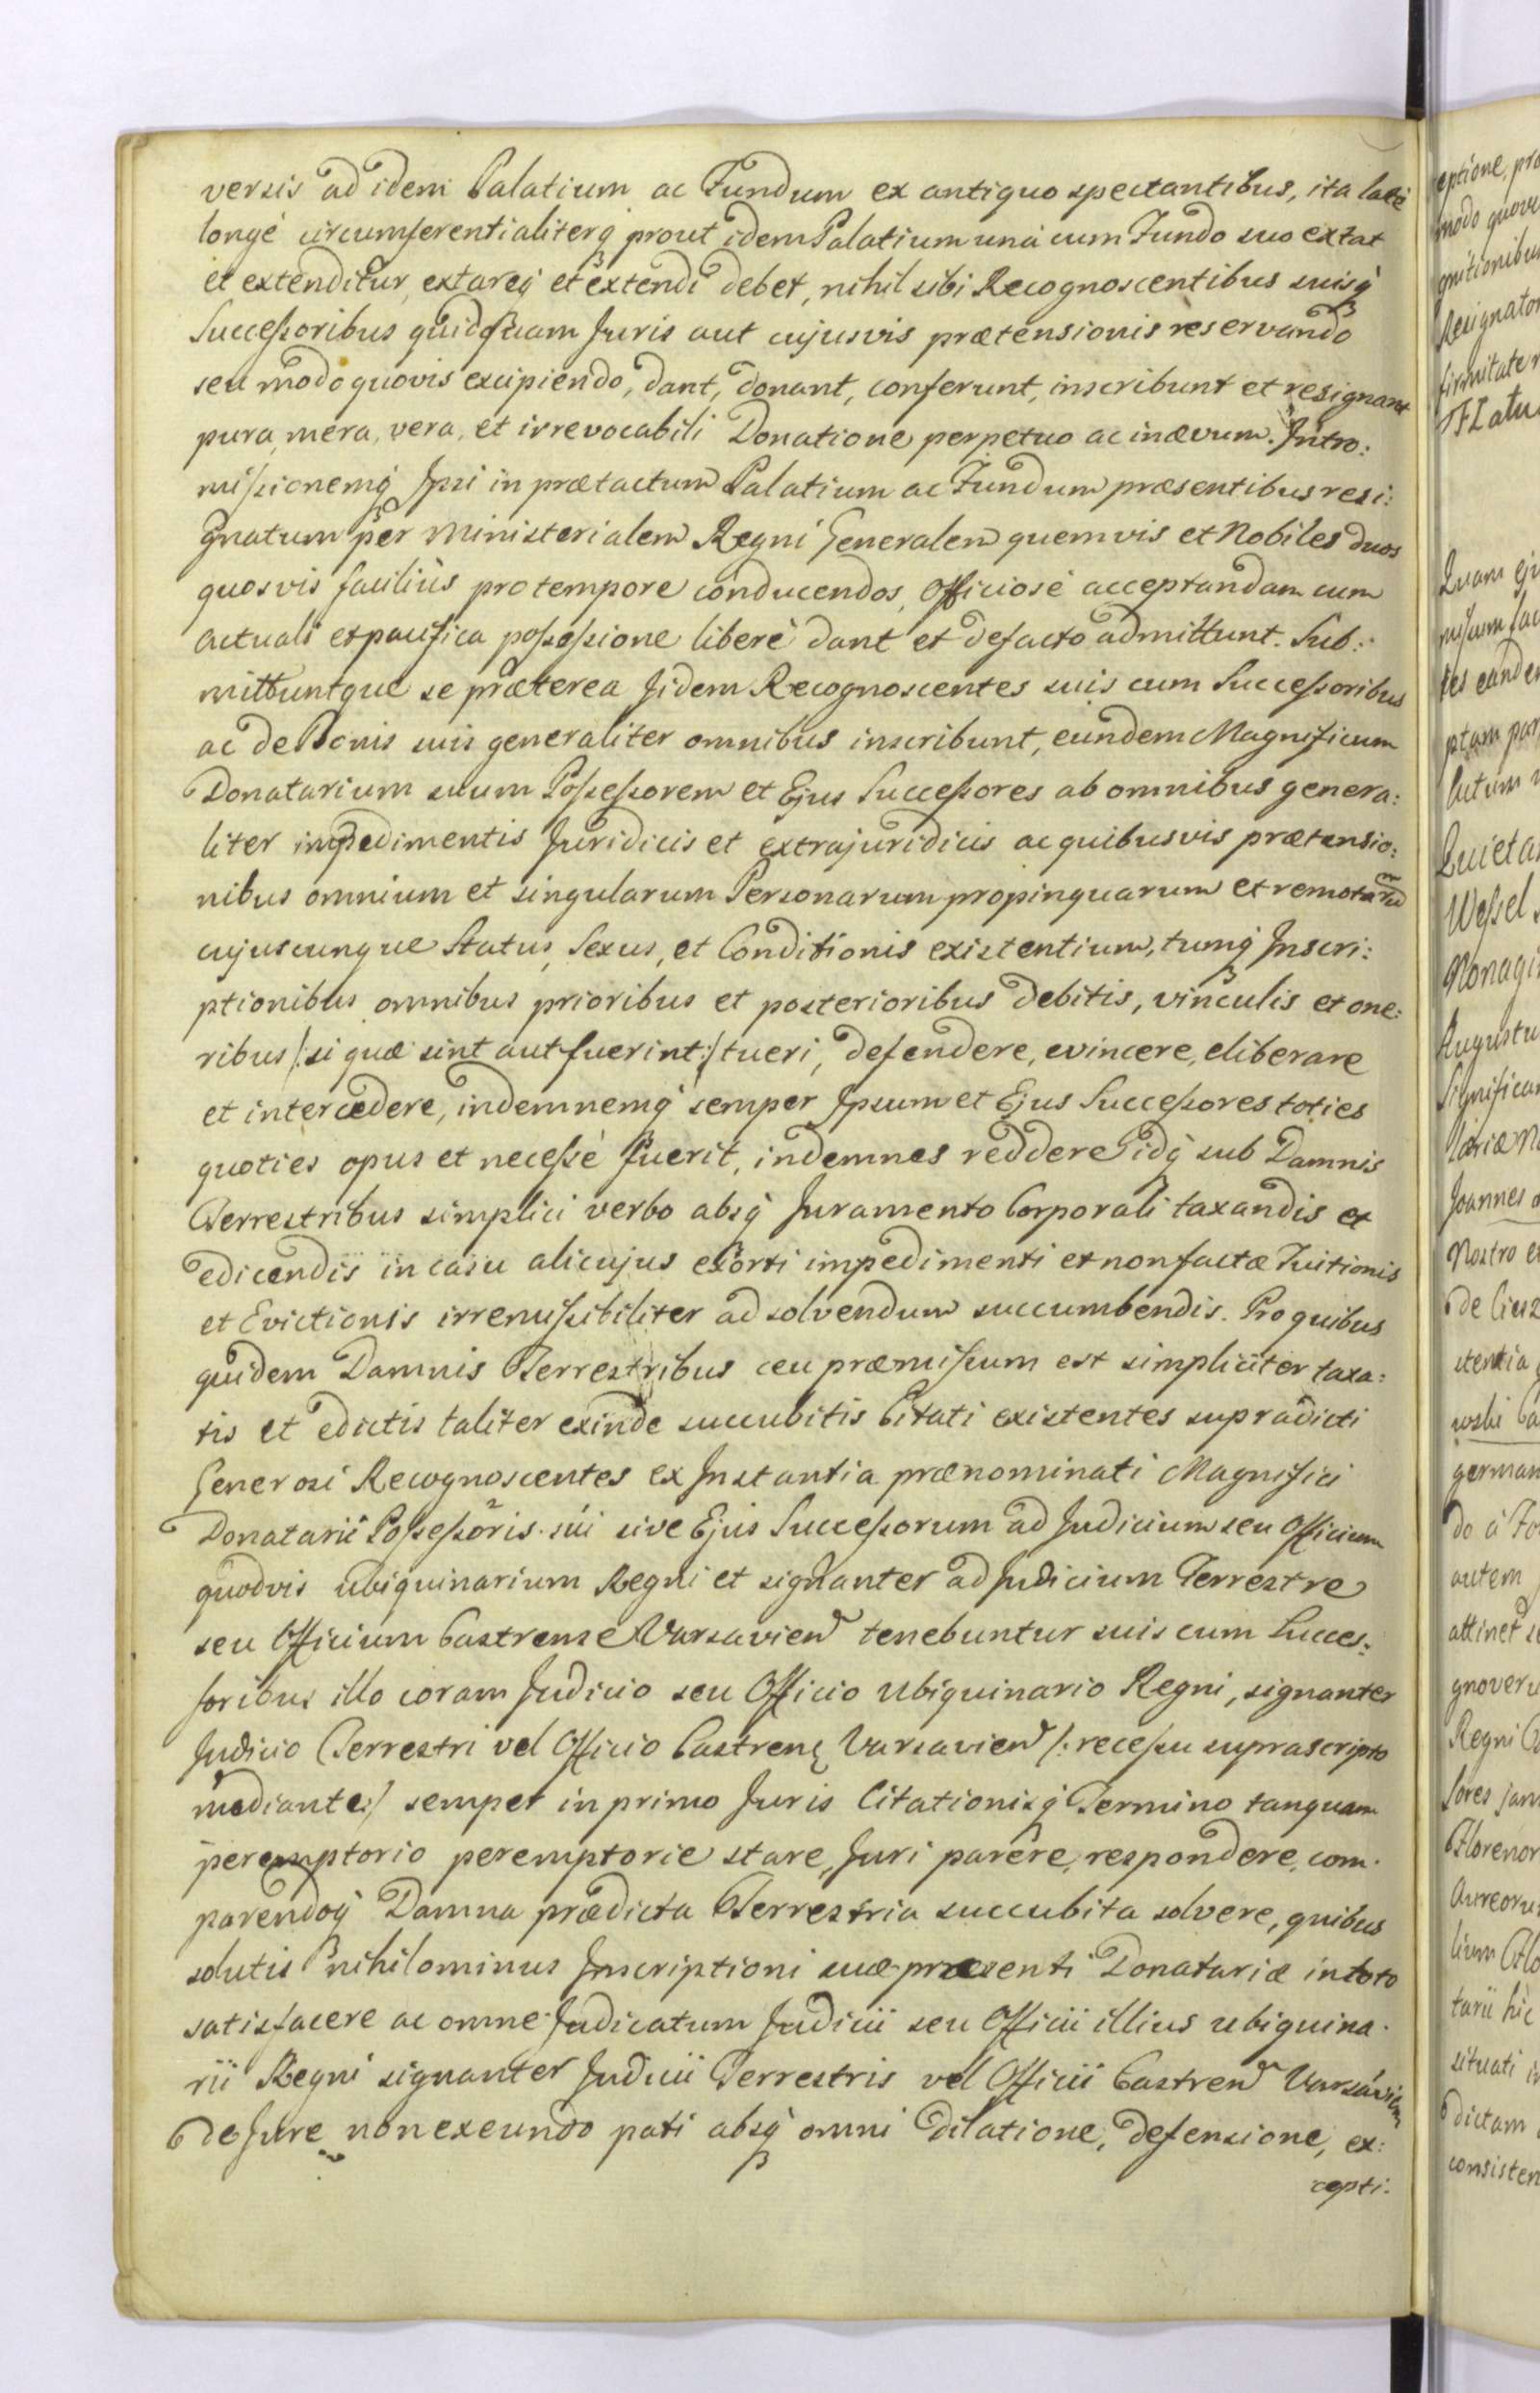 versis ad idem Palatium ac Fundum ex antiquo spectantibus, ita latè
longè circumferentialiterq prout idem Palatium unà cum Fundo suo extat
et extenditur, extareq et extendi debet, nihil sibi Recognoscentibus suisq
Successoribus quidquam Juris aut cujusvis prætensionis reservando
seu modo quovis excipiendo, dant, donant, conferunt, inscribunt et resignant
pura, mera, vera, et irrevocabili Donatione perpetuo ac in ævum. Intro:
missionemq Ipsi in prætactum Palatium ac Fundum præsentibus resi:
gnatum per Ministerialem Regni Generalem quemvis et Nobiles duos
quosvis faciliùs pro tempore conducendos, Officiosè acceptandam cum
actuali et pacifica possessione liberè dant et de facto admittunt. Sub:
mittuntque se præterea Jidem Recognoscentes suis cum Successoribus
ac de Bonis suis generaliter omnibus inscribunt, eundem Magnificum
Donatarium suum Possessorem et Ejus Successores ab omnibus genera:
liter impedimentis Juridicis et extrajuridicis ac quibusvis prætensio:
nibus omnium et singularum Personarum propinquarum et remotarum
cujuscunque Status, Sexus, et Conditionis existentium, tumq Inscri:
ptionibus omnibus prioribus et posterioribus debitis, vinculis et one:
ribus /: si quæ sint aut fuerint :/ tueri, defendere, evincere, eliberare
et intercedere, indemnemq semper Ipsum et Ejus Successores toties
quoties opus et necessè fuerit, indemnes reddere idq sub Damnis
Terrestribus simplici verbo absq Juramento Corporali taxandis et
edicendis in casu alicujus exorti impedimenti et non factæ Tuitionis
et Evictionis irremissibiliter ad solvendum succumbendis. Pro quibus
quidem Damnis Terrestribus ceu præmissum est simpliciter taxa:
tis et edictis taliter exinde succubitis Citati existentes supradicti
Generosi Recognoscentes ex Instantia prænominati Magnifici
Donatarii Possessoris sui sive Ejus Successorum ad Judicium seu Officium
quodvis ubiquinarium Regni et signanter ad Judicium Terrestre
seu Officium Castrense Varsavien tenebuntur suis cum Succes:
soribus illo coram Judicio seu Officio Ubiquinario Regni, signanter
Judicio Terrestri vel Officio Castren Varsavien /: recessu suprascripto
mediante :/ semper in primo Juris Citationisq Termino tanquam
peremptorio peremptorie stare, Juri parêre, respondere, com.
parendoq Damna prædicta Terrestria succubita solvere, quibus
solutis nihilominus Inscriptioni suæ præsenti Donatariæ in toto
satisfacere ac omne Judicatum Judicii seu Officii illius ubiquina.
rii Regni signanter Judicii Terrestris vel Officii Castren Varsavien
de Jure non exeundo pati absq omni dilatione, defensione, ex:
cepti:
eptione, pro
modo quov
gnitionibus
Resignator
firmitatem
Quam
Wessel
Augustu
Joannes
Nostro
german
autem
attinet
gnoveru
Regni
Aureoru
tarii hic
situati
dictam
consisten